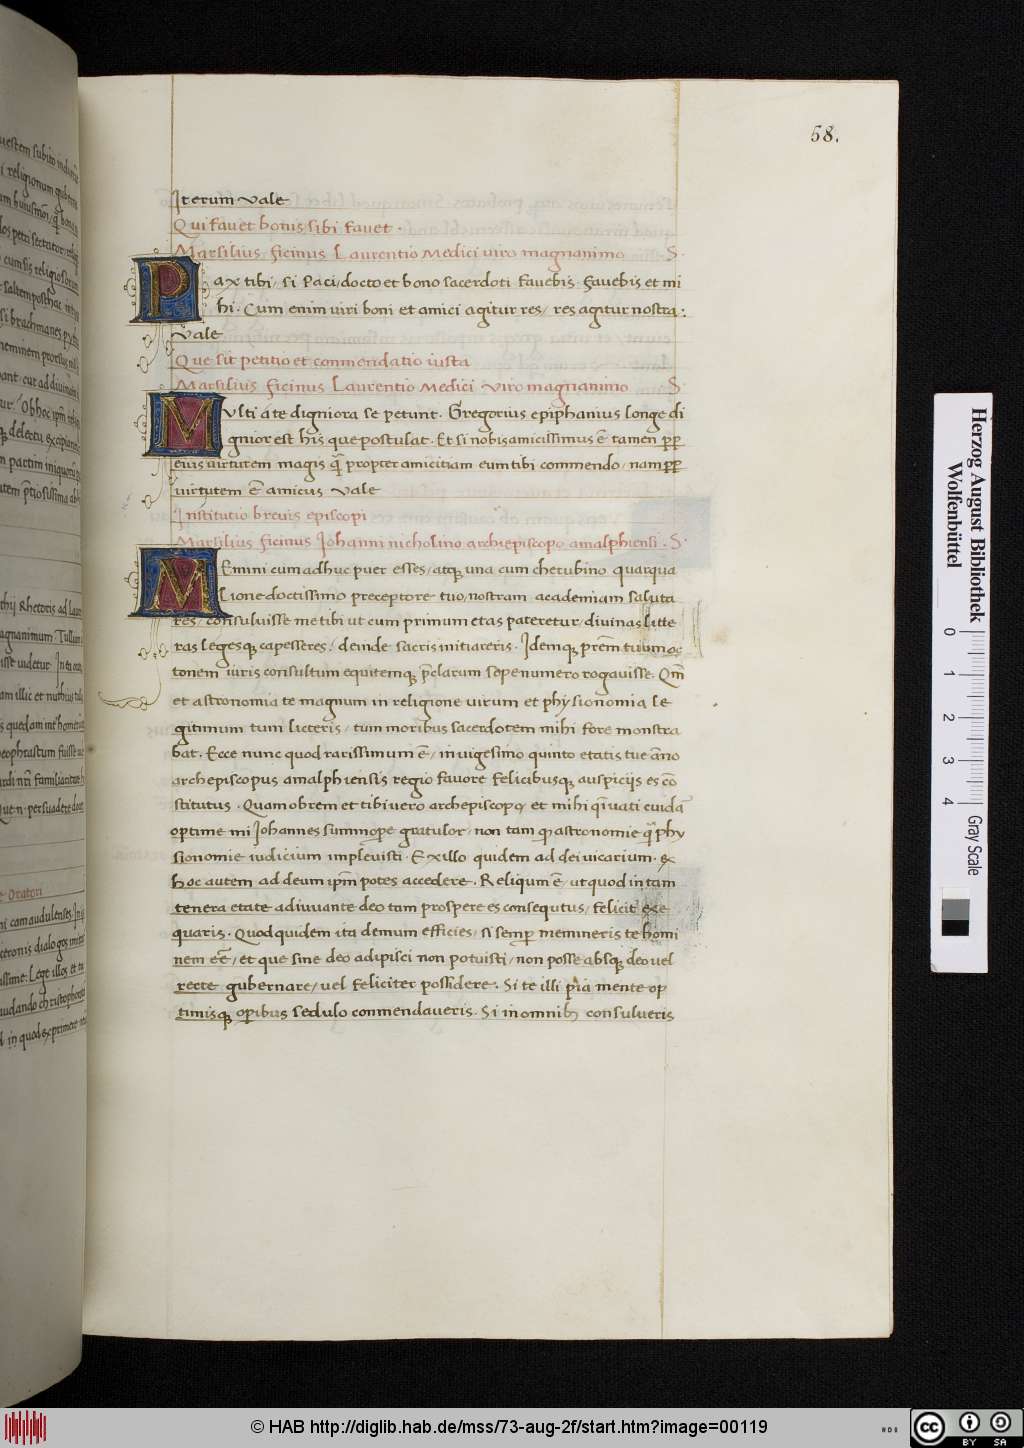 58.
Iterum vale
Qui favet bonis sibi favet.
Marsilius ficinus Laurentio Medici viro magnanimo S.
PAx tibi, si Paci, docto et bono sacerdoti favebis. favebis et mi
hi. Cum enim viri boni et amici agitur res, res agitur nostra.
Vale
Que sit petitio et commendatio iusta
Marsilius ficinus Laurentio Medici viro magnanimo S.
MVlti a te digniora se petunt. Gregorius epiphanius longe di
gnior est his que postulat. Et si nobis amicissimus ẽ tamen ꝓpꝑ
eius virtutem magis q̃ propter amicitiam eum tibi commendo, nam ꝓpꝑ
virtutem ẽ amicus vale
Institutio brevis episcopi
Marsilius ficinus Iohanni nicholino archiepiscopo amalphiensi. S.
MEmini cum adhuc puer esses, atqꝫ una cum cherubino quarqua
lione doctissimo preceptore tuo, nostram academiam saluta
res, consuluisse me tibi ut cum primum etas pateretur, divinas litte
ras legesqꝫ capesseres, deinde sacris initiareris. Idemqꝫ pr̃em tuum oc
tonem iuris consultum equitemqꝫ p̃clarum sepenumero rogavisse. Qm̃
et astronomia te magnum in religione virum et physionomia le
gitimum tum licteris, tum moribus sacerdotem mihi fore monstra
bat. Ecce nunc quod rarissimum ẽ, in vigesimo quinto etatis tue ãno
archepiscopus amalphiensis regio favore felicibusqꝫ auspicijs es cõ
stitutus. Quamobrem et tibi vero archepiscopo, et mihi q̃ vati evidã
optime mi Iohannes summoꝑe gratulor, non tam ꝙ astronomie q̃ phy
sionomie iudicium implevisti. Ex illo quidem ad dei vicarium. ex
hoc autem ad deum ip̃m potes accedere. Reliqum ẽ, ut quod in tam
tenera etate adiuvante deo tam prospere es consequtus, felicit̃ exe
quaris. Quod quidem ita demum efficies, si semꝑ memineris te homi
nem eẽ, et que sine deo adipisci non potuisti, non posse absqꝫ deo vel
recte gubernare, vel feliciter possidere. Si te illi p̃ia mente op
timisqꝫ oꝑibus sedulo commendaveris. Si in omnibꝫ consulueris
Herzog August Bibliothek
Wolfenbüttel
0 1 2 3 4 Gray Scale
© HAB http://diglib.hab.de/mss/73-aug-2f/start.htm?image=00119
cc BY SA